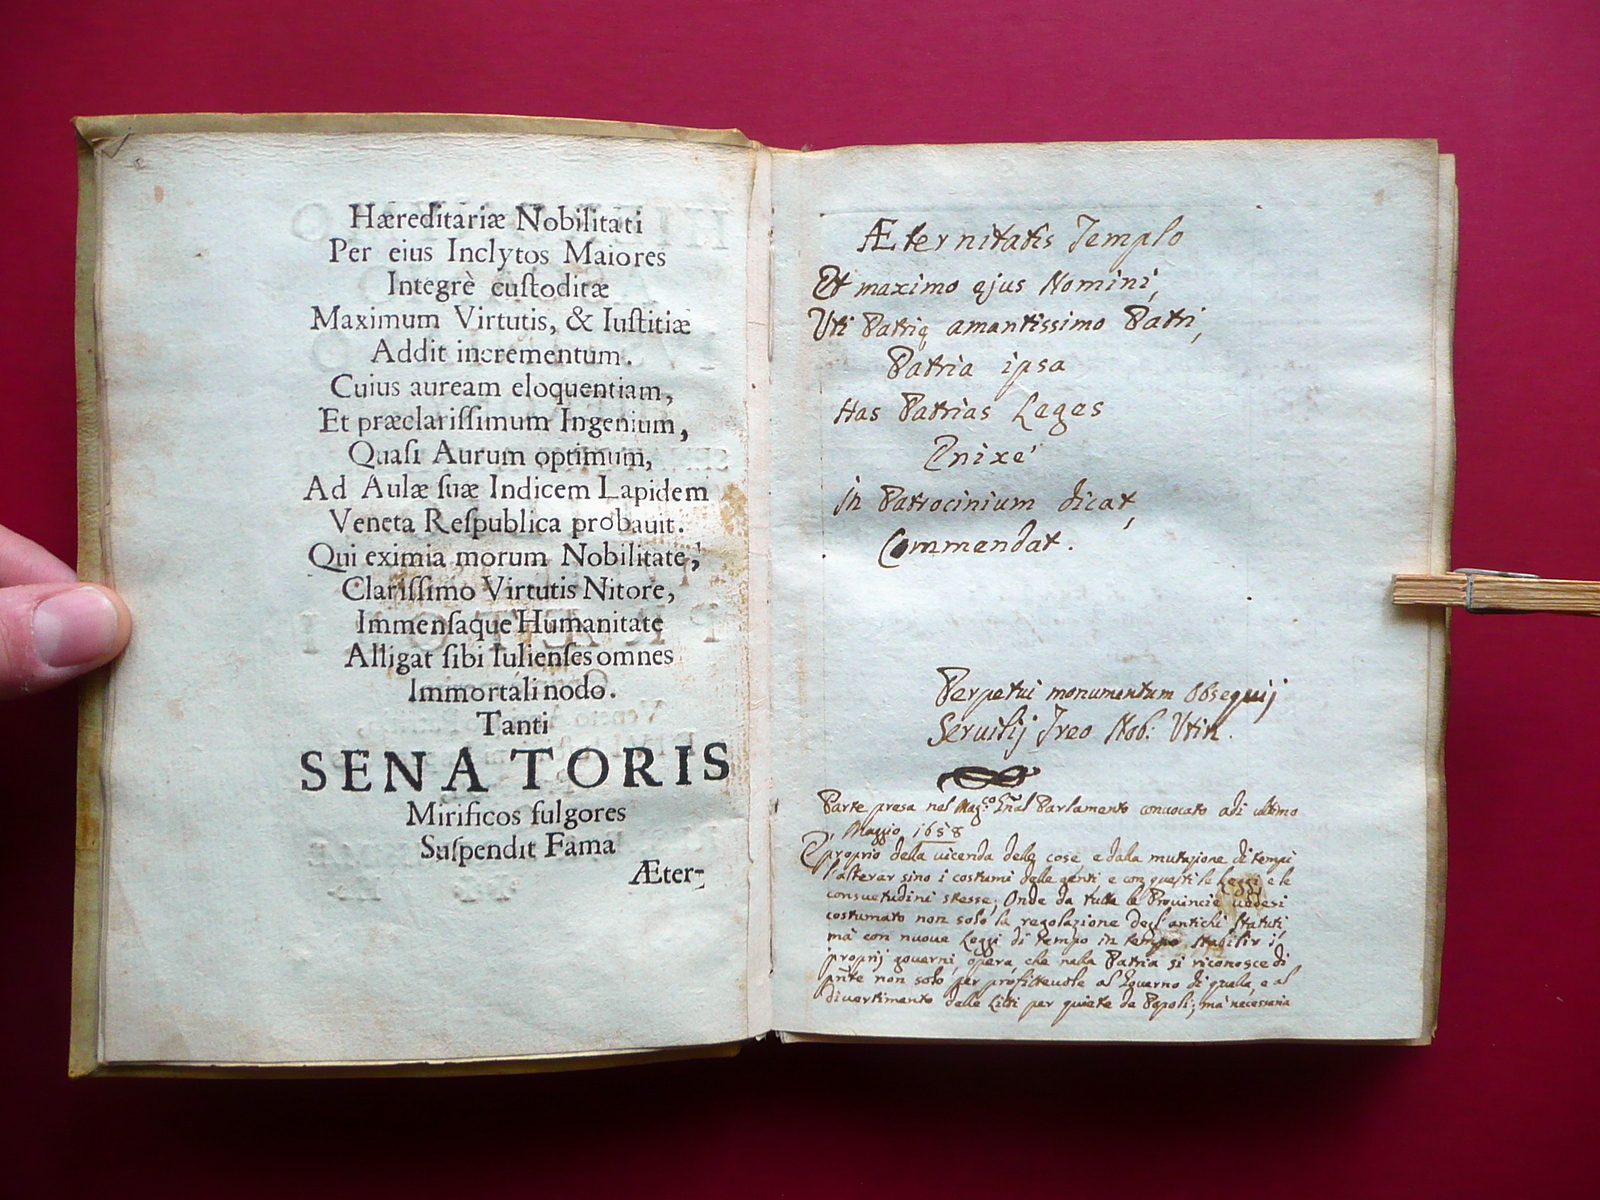 Hæreditariæ Nobilitati
Per eius Inclytos Maiores
Integrè cuſtoditæ
Maximum Virtutis, & Iuſtitiæ
Addit incrementum.
Cuius auream eloquentiam,
Et præclariſſimum Ingenium,
Quaſi Aurum optimum,
Ad Aulæ ſuæ Indicem Lapidem
Veneta Reſpublica probauit.
Qui eximia morum Nobilitate,
Clariſſimo Virtutis Nitore,
Immenſaque Humanitate
Alligat ſibi Iulienſes omnes
Immortali nodo.
Tanti
SENATORIS
Mirificos fulgores
Suſpendit Fama
Æter-
Æternitatis Templo
Et maximo ejus Nomini,
Uti Patrię amantissimo Patri,
Patria ipsa
Has Patrias Leges
Enixè
In Patrocinium dicat,
Commendat.
Perpetui monumentum Obsequij
Seruilij Treo Nob: Utin.
Parte presa nel Mag.co Gñal Parlamento conuocato adi ultimo
Maggio 1658
È proprio della uicenda delle cose, e dalla mutazione di tempi
l'alterar sino i costumi delle genti e con questi le Leggi e le
consuetudini stesse; Onde da tutte le Prouincie uedesi
costumato non solo la regolazione degl'antichi Statuti
mà con nuoue Leggi di tempo in tempo stabilir i
proprij gouerni, opera, che nella Patria si riconosce di
pñte non solo per profitteuole al Gouerno di quella, e al
diuertimento delle Liti per quiete de Popoli; mà necessaria